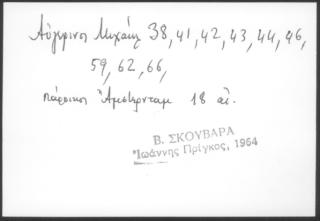 Αὐγερινὸς Μιχάλης 38, 41, 42, 43, 44, 46,
59, 62, 66,
πάροικος Ἄμστερνταμ 18 αἰ.
Β. ΣΚΟΥΒΑΡΑ
Ἰωάννης Πρίγκος, 1964